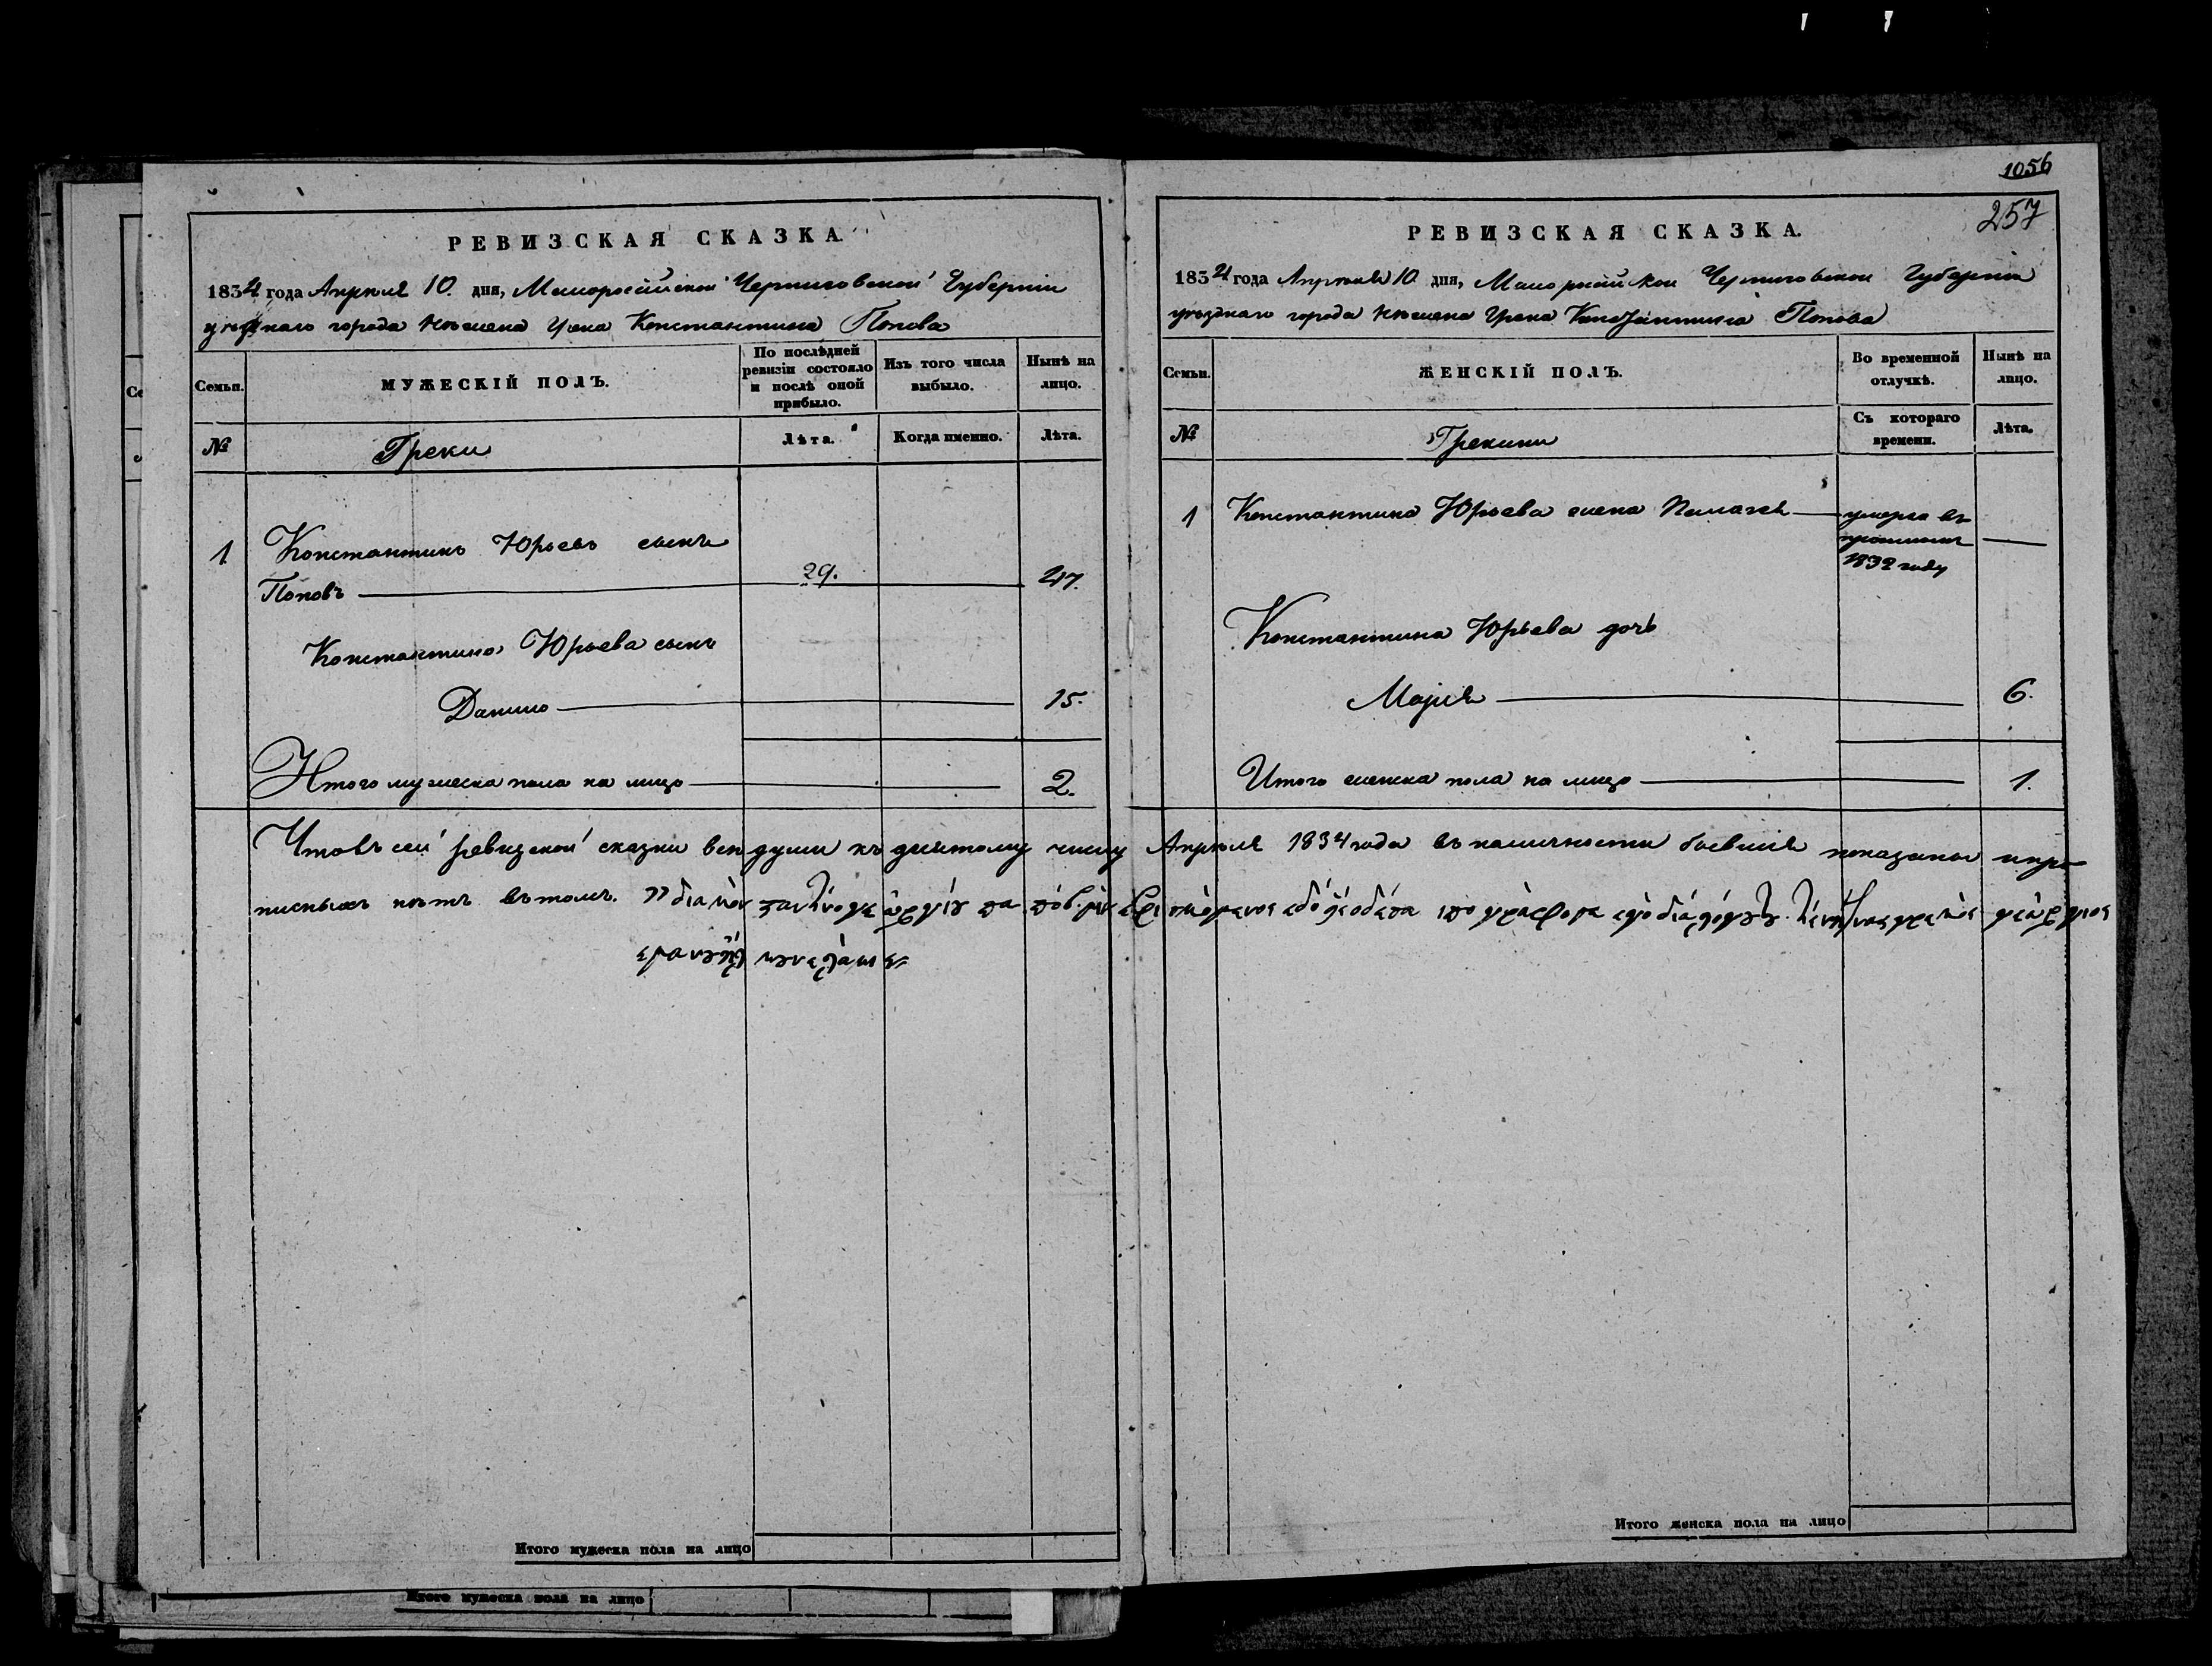 РЕВИЗСКАЯ СКАЗКА.
1834 года Апреля 10. дня, Малоросійской Черниговской Губерніи
уезднаго города Нѣжина Грека Константина Попова
Семьи.
МУЖЕСКІЙ ПОЛЪ.
По послѣдней ревизіи состояло и послѣ оной прибыло.
Изъ того числа выбыло.
Нынѣ на лицо.
№
Греки
Лѣта.
Когда именно.
Лѣта.
1. Константинъ Юрьевъ сынъ
Поповъ 29. 47.
Константина Юрьева сынъ
Данило 15.
Итого мужеска пола на лицо 2.
1056
257
РЕВИЗСКАЯ СКАЗКА.
1834 года Апреля 10 дня, Малоросійской Черниговской Губерніи
уезднаго города Нѣжина Грека Константина Попова
Семьи.
ЖЕНСКІЙ ПОЛЪ.
Во временной отлучкѣ.
Нынѣ на лицо.
№
Грекини
Съ котораго времени.
Лѣта.
1 Константина Юрьева жена Пелагея умерла въ
1832 году
Константина Юрьева дочь
Марія 6.
Итого женска пола на лицо 1.
Что въ сей ревизской сказки все души къ десятому числу Апреля 1834 года въ наличности бывшія показаны и про
писныхъ нѣтъ въ томъ. διὰ κὸν
γεώργιος
Итого мужеска пола на лицо
Итого женска пола на лицо
Итого мужеска пола на лицо